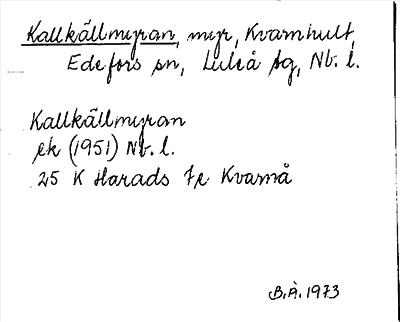 Kallkällmyran, myr, Kvarnhult,
Edefors sn, Luleå sg, Nb. l.
Kallkällmyran
ek (1951) Nb. l.
25 K Harads 7e Kvarnå
B.Å. 1973